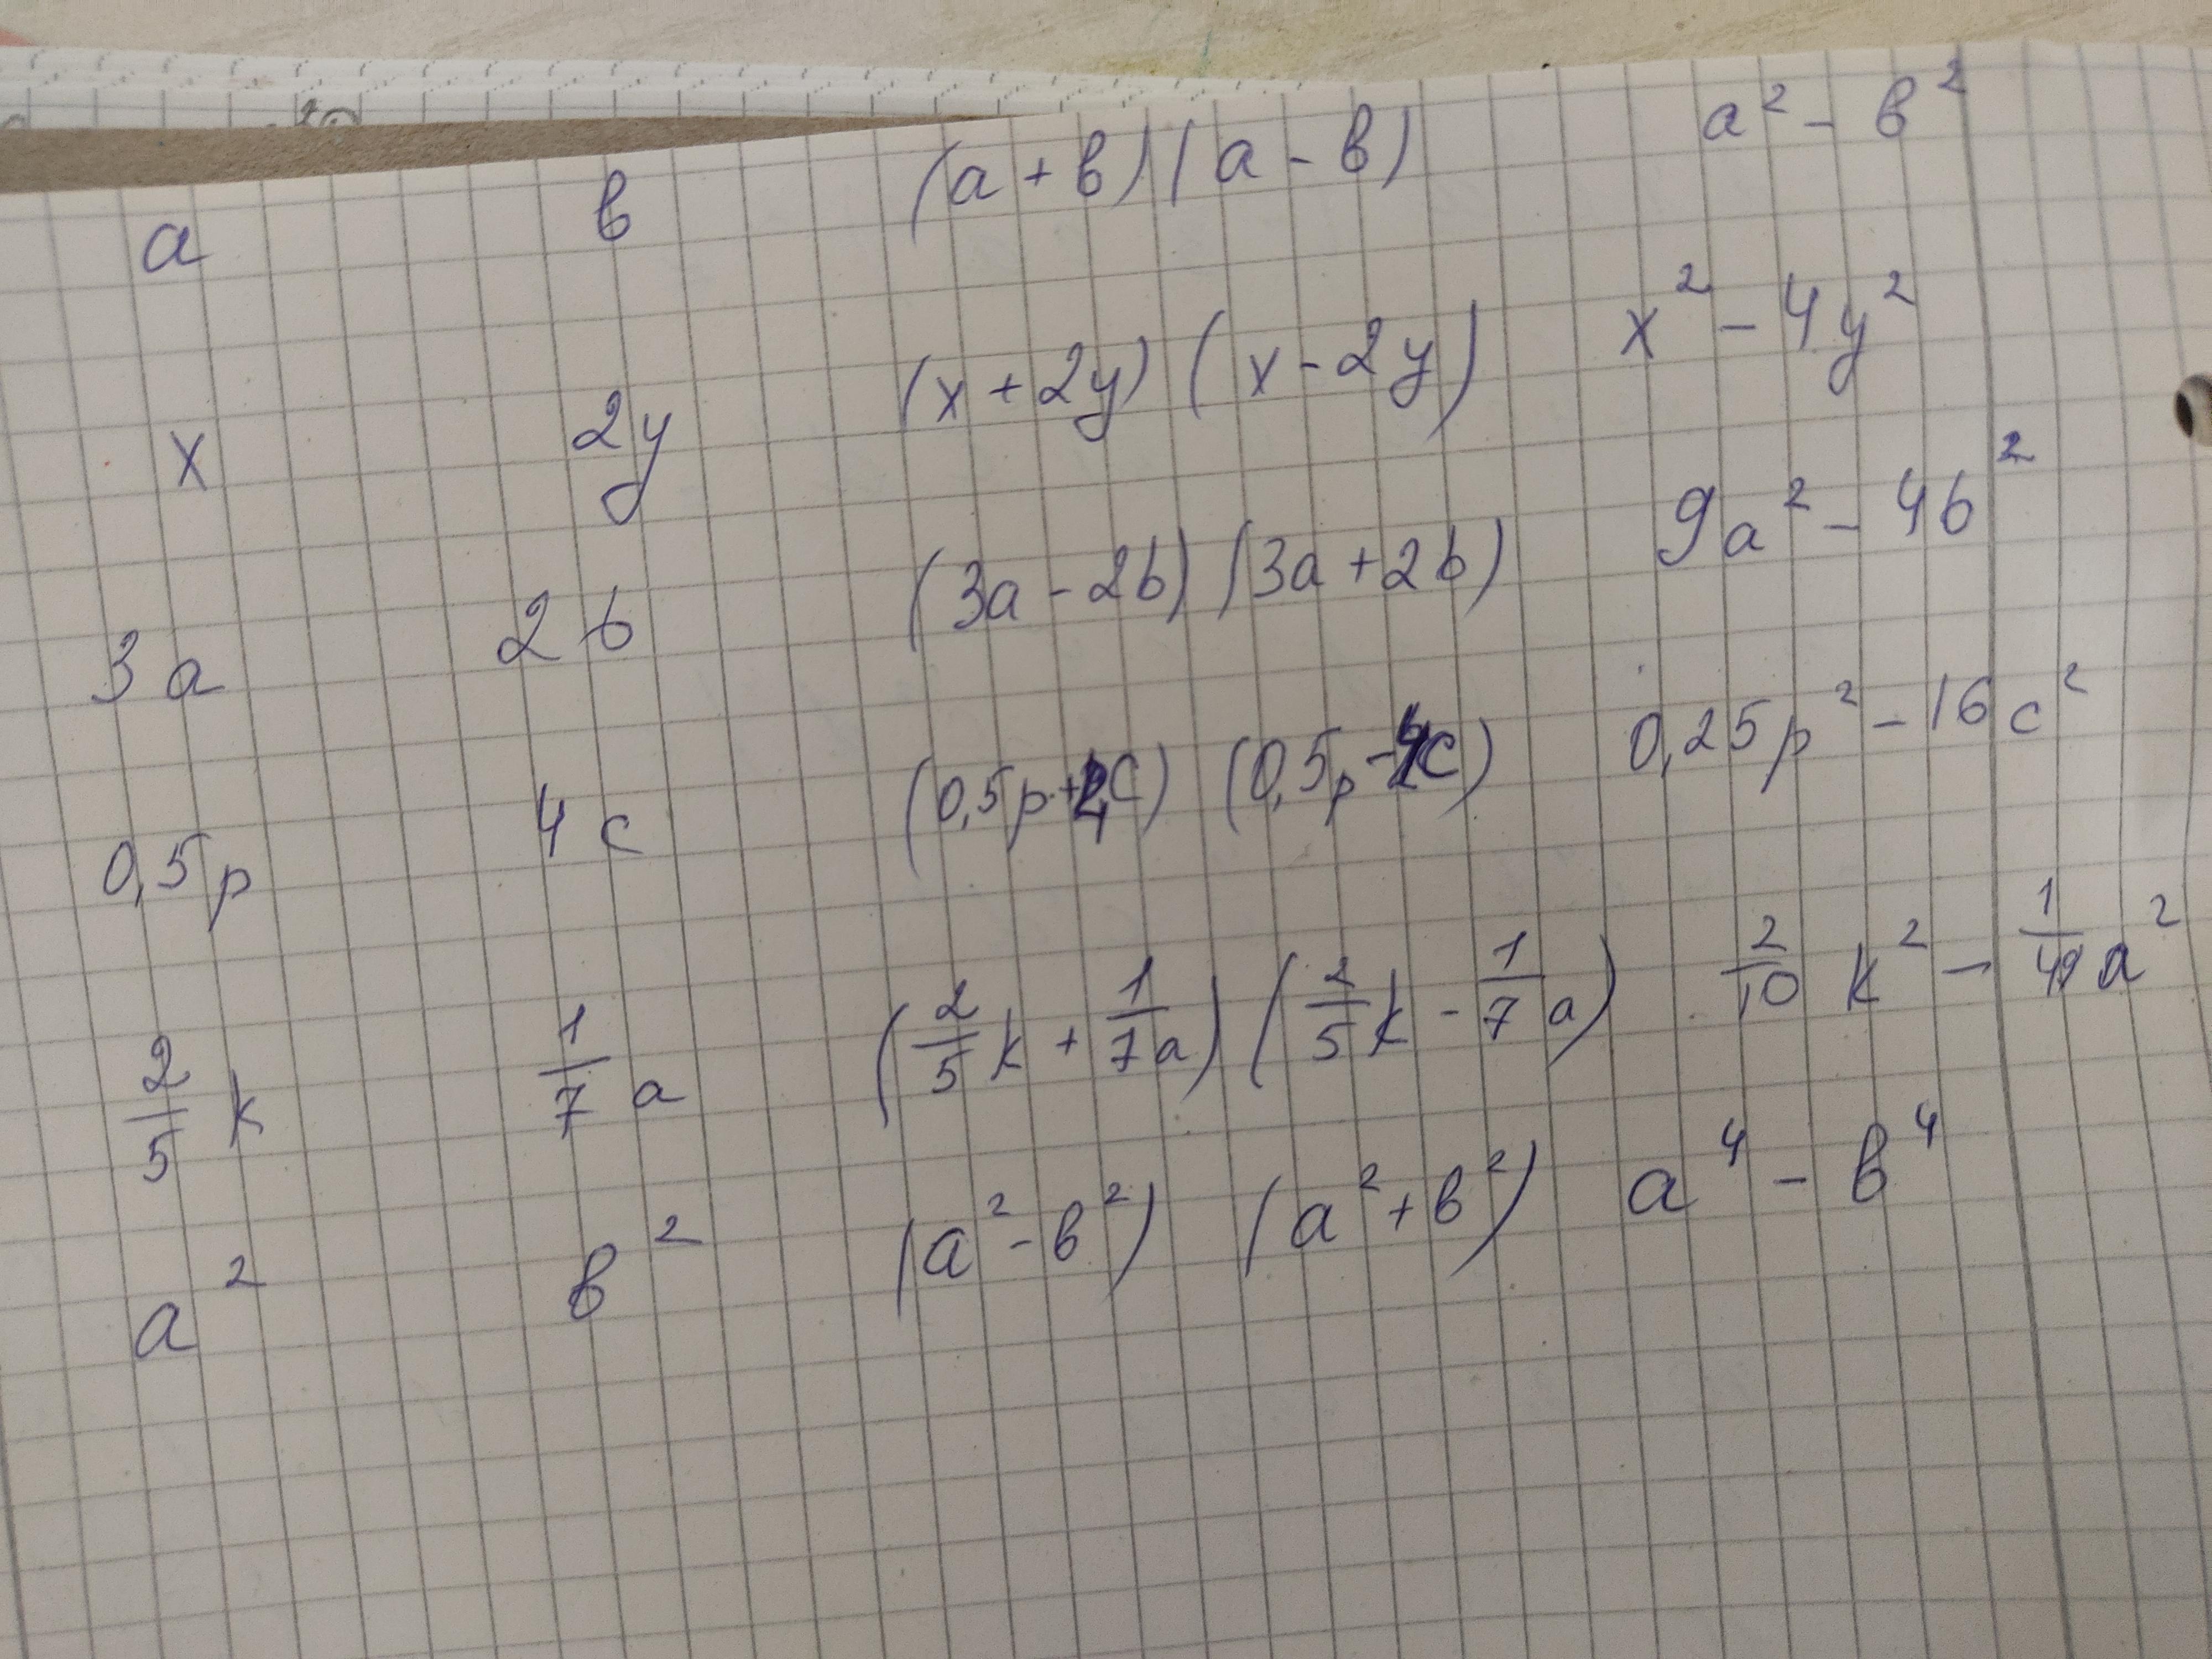 a в (a + в)(a - в) a² - в²
x 2y (x + 2y) (x - 2y) x² - 4y²
3a 2b (3a - 2b) (3a + 2b) 9a² - 4b²
0,5p 4c (0,5p + 4c) (0,5p - 4c) 0,25p² - 16c²
2/5 k 1/7 a (2/5 k + 1/7 a) (2/5 k - 1/7 a) 2/10 k² - 1/49 a²
a² в² (a² - в²) (a² + в²) a⁴ - в⁴